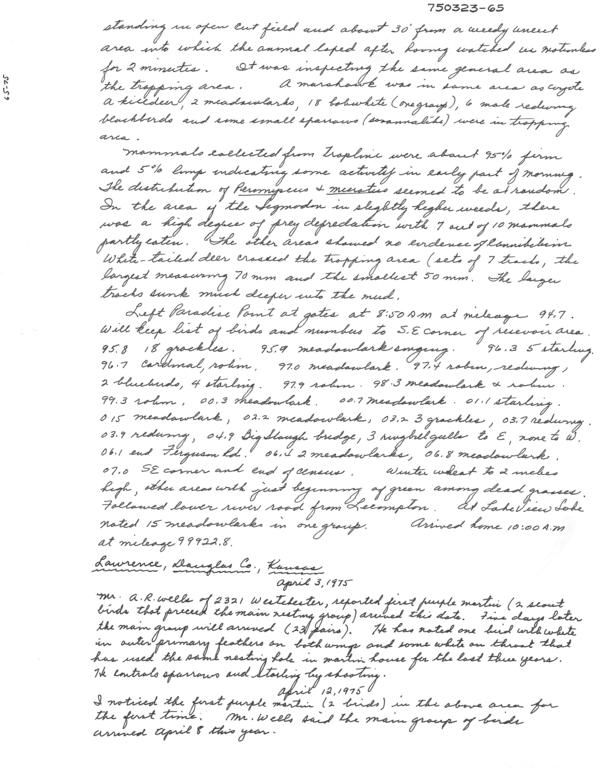 750323-65
standing in open cut field and about 30' from a weedy uncut
area into which the animal loped after having watched us motionless
for 2 minutes. It was inspecting the same general area as
the trapping area. A marshawk was in same area as coyote
A killdeer, 2 meadowlarks, 18 bobwhite (one group), 6 male redwing
blackbirds and some small sparrows (savannahlike) were in trapping
area.
Mammals collected from trapline were about 95% firm
and 5% limp indicating some activity in early part of morning.
The distribution of Peromyscus & microtus seemed to be at random.
In the area of the Sigmodon in slightly higher weeds, there
was a high degree of prey depredation with 7 out of 10 mammals
partly eaten. The other areas showed no evidence of Cannibilism
White-tailed deer crossed the trapping area (sets of 7 tracks, the
largest measuring 70 mm and the smallest 50 mm. The larger
tracks sunk much deeper into the mud.
Left Paradise Point at gates at 8:50 AM at mileage 94.7.
Will keep list of birds and numbers to S.E corner of resevoir area.
95.8 18 grackles. 95.9 meadowlark singing. 96.3 5 starling.
96.7 Cardinal, robin. 97.0 meadowlark. 97.4 robin, redwing,
2 bluebirds, 4 starling. 97.9 robin. 98.3 meadowlark & robin.
99.3 robin, 00.3 meadowlark. 00.7 meadowlark. 01.1 starling.
015 meadowlark, 02.2 meadowlark, 03.2 3 grackles, 03.7 redwing.
03.9 redwing, 04.9 Big Slough bridge, 3 ringbillgulls to E, none to W.
06.1 end Ferguson Rd. 06.4 2 meadowlarks, 06.8 meadowlark.
07.0 SE corner and end of census. Winter wheat to 2 inches
high, other areas with just beginning of green among dead grasses.
Followed lower river road from Lecompton. At LakeView Lake
noted 15 meadowlarks in one group. Arrived home 10:00 A.M
at mileage 99922.8.
Lawrence, Douglas Co., Kansas
April 3, 1975
Mr. A.R. Wells of 2321 Westchester, reported first purple martin (2 scout
birds that preceed the main nesting group) arrived this date. Five days later
the main group will arrived (23 pairs). He has noted one bird with white
in outer primary feathers on both wings and some white on throat that
has used the same nesting hole in martin house for the last three years.
He controls sparrows and starling by shooting.
April 12, 1975
I noticed the first purple martin (2 birds) in the above area for
the first time. Mr. Wells said the main group of birds
arrived April 8 this year.